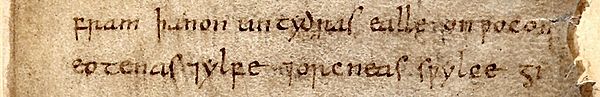 fram þanon untydras ealle onpocon
eotenas ⁊ylfe ⁊orcneas spylce gi